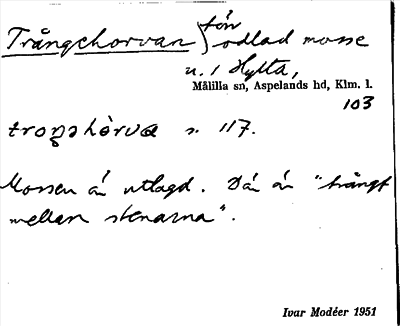 Trångchorvan } fön
odlad mosse
u. / Hylta,
Målilla sn, Aspelands hd, Klm. l.
103
troŋshòrva s. 117.
Mossen är utlagd. Där är "trångt
mellan stenarna".
Ivar Modéer 1951